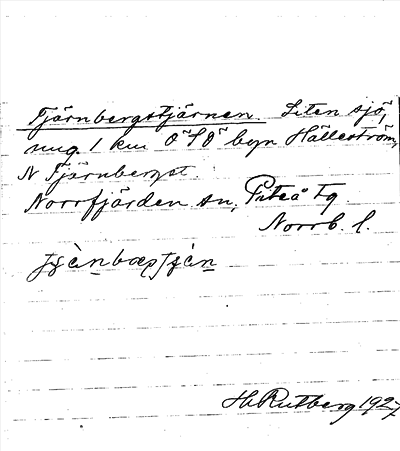 Tjärnbergstjärnen. Liten sjö,
ung. 1 km O t S O byn Hälleström,
N Tjärnbergst.
Norrfjärden sn, Piteå tg
Norrb. l.
H. Rutberg 1927